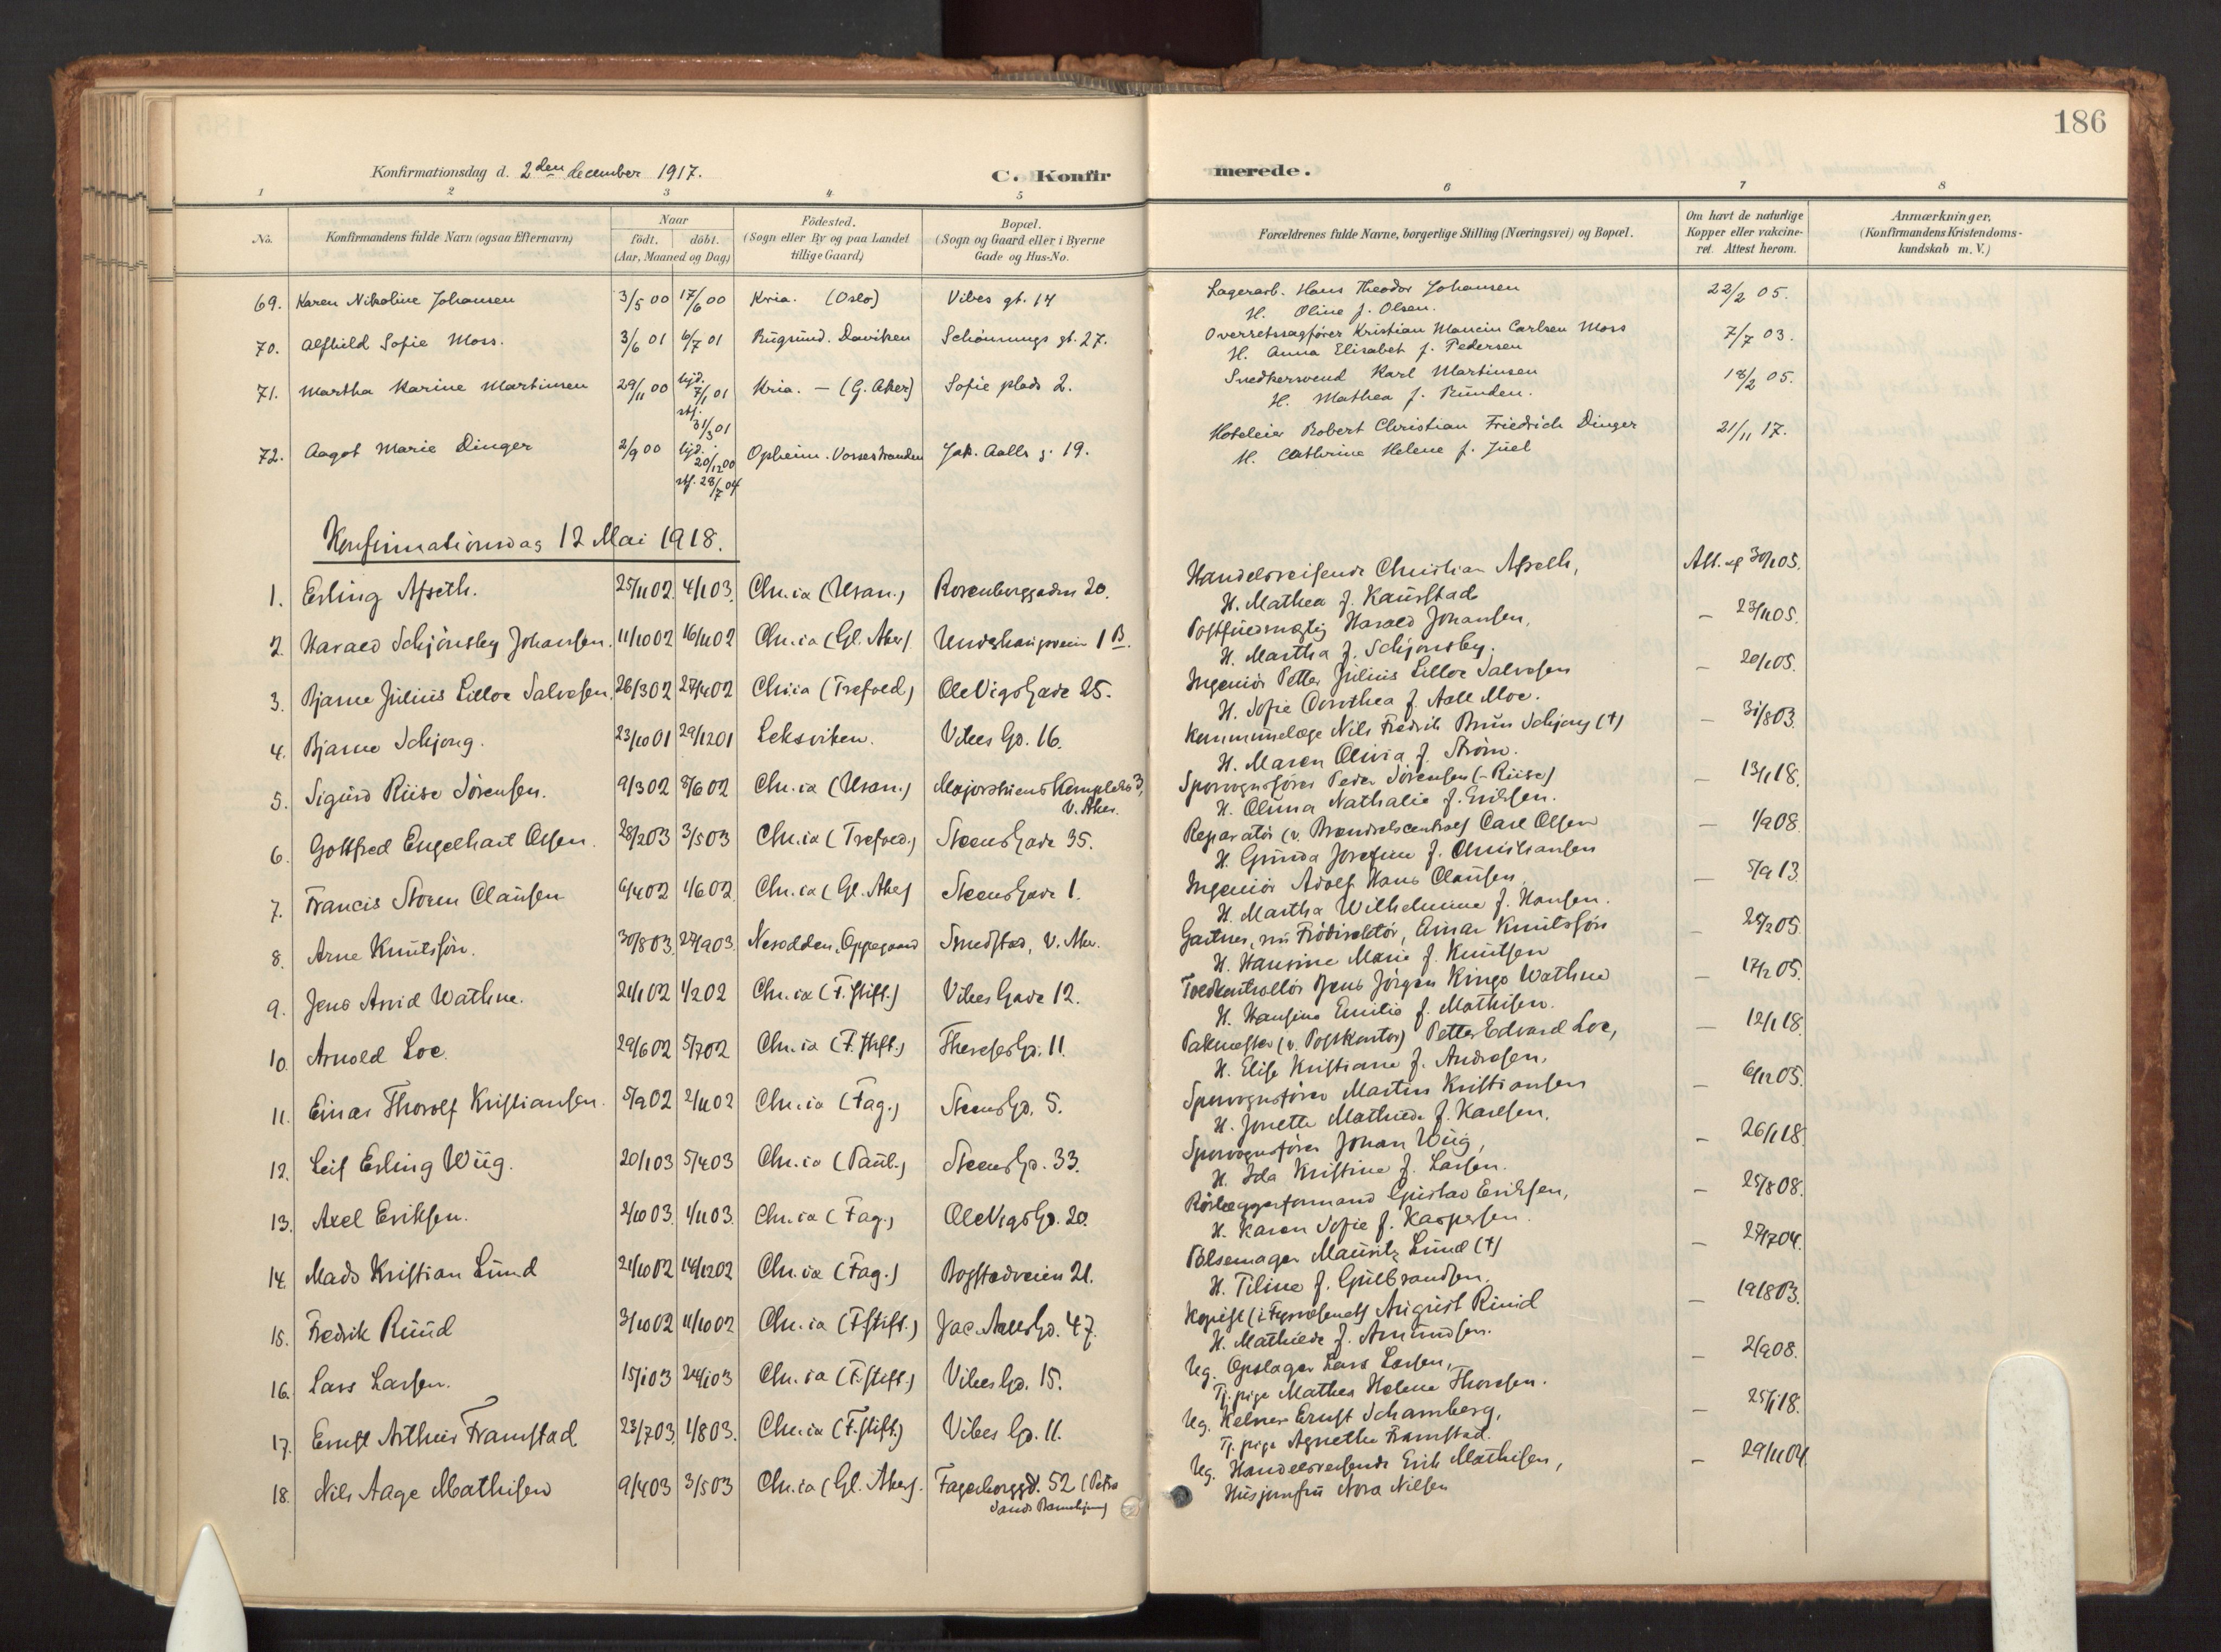 186
Konfirmationsdag d. 2den december 1917.
C. Konfirmerede.
1 2 3 4 5 6 7 8
No.
Konfirmandens fulde Navn (ogsaa Efternavn)
Naar
födt. döbt.
(Aar, Maaned og Dag)
Födested.
(Sogn eller By og paa Landet
tillige Gaard)
Bopæl.
(Sogn og Gaard eller i Byerne
Gade og Hus-No.
Forældrenes fulde Navne, borgerlige Stilling (Næringsvei) og Bopæl.
Om havt de naturlige
Kopper eller vakcine-
ret. Attest herom.
Anmærkninger.
(Konfirmandens Kristendoms-
kundskab m. V.)
69. Karen Nikoline Johansen 3/5 00 17/6 00 Kria. (Oslo) Vibes gt. 14 Lagerarb. Hans Theodor Johansen 22/2 05.
H. Oline f. Olsen.
70. Alfhild Sofie Moss. 3/6 01 6/7 01 Rugsund. Daviken Schønnings gt. 27. Overretssagfører Kristian Carlsen Moss 7/7 03.
H. Anna Elisabet f. Pedersen
71. Martha Karine Martinsen 29/11 00 hjd. 7/1 01 Kria. — (G. Aker) Sofie plads 2. Snedkersvend Karl Martinsen 18/2 05.
stf. 31/3 01
H. Mathea f. Runden.
72. Aagot Marie Dinger 2/9 00 hjd. 20/12 00 Opheim. Vossestranden Jak. Aalls g. 19. Hoteleier Robert Christian Friedrich Dinger 21/11 17.
stf. 28/7 04
H. Cathrine Helene f. Juel
Konfirmationsdag 12 Mai 1918.
1. Erling Apseth. 25/11 02. 4/1 03. Chr.ia (Uran.) Rosenborggaden 20. Handelsreisende Christian Apseth, Att. af 30/1 05.
H. Mathea f. Kaurstad
2. Harald Schjønsby Johansen. 11/10 02 16/11 02 Chr.ia (Gl. Aker) 1 B. Postfuldmægtig Harald Johansen, — 23/11 05.
H. Martha f. Schjønsby.
3. Bjarne Julius Lilloe Salvesen. 26/3 02 27/4 02 Chr.ia (Trefold.) Ole Vigs Gade 25. Ingeniör Petter Julius Lilloe Salvesen — 20/1 05.
H. Sofie Dorothea f. Aall Moe.
4. Bjarne Schjong. 23/10 01 29/12 01 Leksviken. Vibes Gd. 16. Kommunelæge Nils Fredrik Brun Schjong (†) — 31/8 03.
H. Maren Olivia f. Strøm.
5. Sigurd Riise Sörensen. 9/3 02 8/6 02 Chr.ia (Uran.) Majorstuens Kompleks 3, Sporvognsfører Peder Sörensen (-Riise) — 13/1 18.
V. Aker.
H. Oluna Nathalie f. Eriksen.
6. Gottfred Engelhart Olsen. 28/2 03 3/5 03 Chr.ia (Trefold.) Steens Gade 35. Reparatör (v. Brændselscentral) Carl Olsen — 1/9 08.
H. Gunda Josefine f. Christiansen
7. Francis Storm Clausen 6/4 02 1/6 02 Chr.ia (Gl. Aker) Steens Gade 1. Ingeniör Adolf Hans Clausen, — 5/9 13.
H. Martha Wilhelmine f. Hansen.
8. Arne Knutssön. 30/8 03. 27/9 03. Nesodden, Oppegaard Smedstad, V. Aker. Gartner, nu Frödirektör, Einar Knutssön — 25/2 05.
H. Hansine Marie f. Knutsen
9. Jens Arvid Wathne. 21/1 02 1/2 02 Chr.ia (F. stift.) Vibes Gade 12. Toldkontrollör Jens Jörgen Kingo Wathne — 17/2 05.
H. Hansine Emilie f. Mathisen.
10. Arnold Loe. 29/6 02 5/7 02 Chr.ia (F. stift.) Thereses Gd. 11. Pakmester (v. Postkontor) Petter Edvard Loe, — 12/1 18.
H. Elise Kristiane f. Andresen.
11. Einar Thorolf Kristiansen. 5/9 02 2/11 02 Chr.ia (Fag.) Steens Gd. 5. Sporvognsfører Martin Kristiansen — 6/12 05.
H. Jonette Mathilde f. Karlsen.
12. Leif Erling Wiig. 20/1 03 5/4 03 Chr.ia (Paul.) Steens Gd. 33. Sporvognsfører Johan Wiig, — 26/1 18.
H. Ida Kristine f. Larsen.
13. Axel Eriksen. 2/10 03. 1/11 03. Chr.ia (Fag.) Ole Vigs Gd. 20. Rørlæggerformand Gustav Eriksen, — 25/8 08.
H. Karen Sofie f. Kaspersen.
14. Mads Kristian Lund 21/10 02 14/12 02 Chr.ia (Fag.) Bogstadveien 21. Pølsemager Mauritz Lund (†) — 27/7 04.
H. Tiline f. Gulbrandsen.
15. Fredrik Ruud 3/10 02 11/10 02 Chr.ia (F. stift.) Jac. Aalls Gd. 47. Kopist (i Fyrvæsenet) August Ruud — 19/8 03.
H. Mathilde f. Amundsen.
16. Lars Larsen. 15/1 03 24/1 03 Chr.ia (F. stift.) Vibes Gd. 15. Ug. Opslager Lars Larsen, — 2/9 08.
Tj. pige Mathea Helene Thoresen.
17. Ernst Arthur Framstad 23/7 03. 1/8 03. Chr.ia (F. stift.) Vibes Gd. 11. Ug. Kelner Ernst Schamberg, — 25/1 18.
Tj. pige Agnethe Framstad.
18. Nils Aage Mathisen 9/4 03 3/5 03 Chr.ia (Gl. Aker). Fagerborggd. 52 (Petra Ug. Handelsreisende Erik Mathisen, — 29/11 04.
Sands Barnehjem)
Husjomfru Nora Nilsen